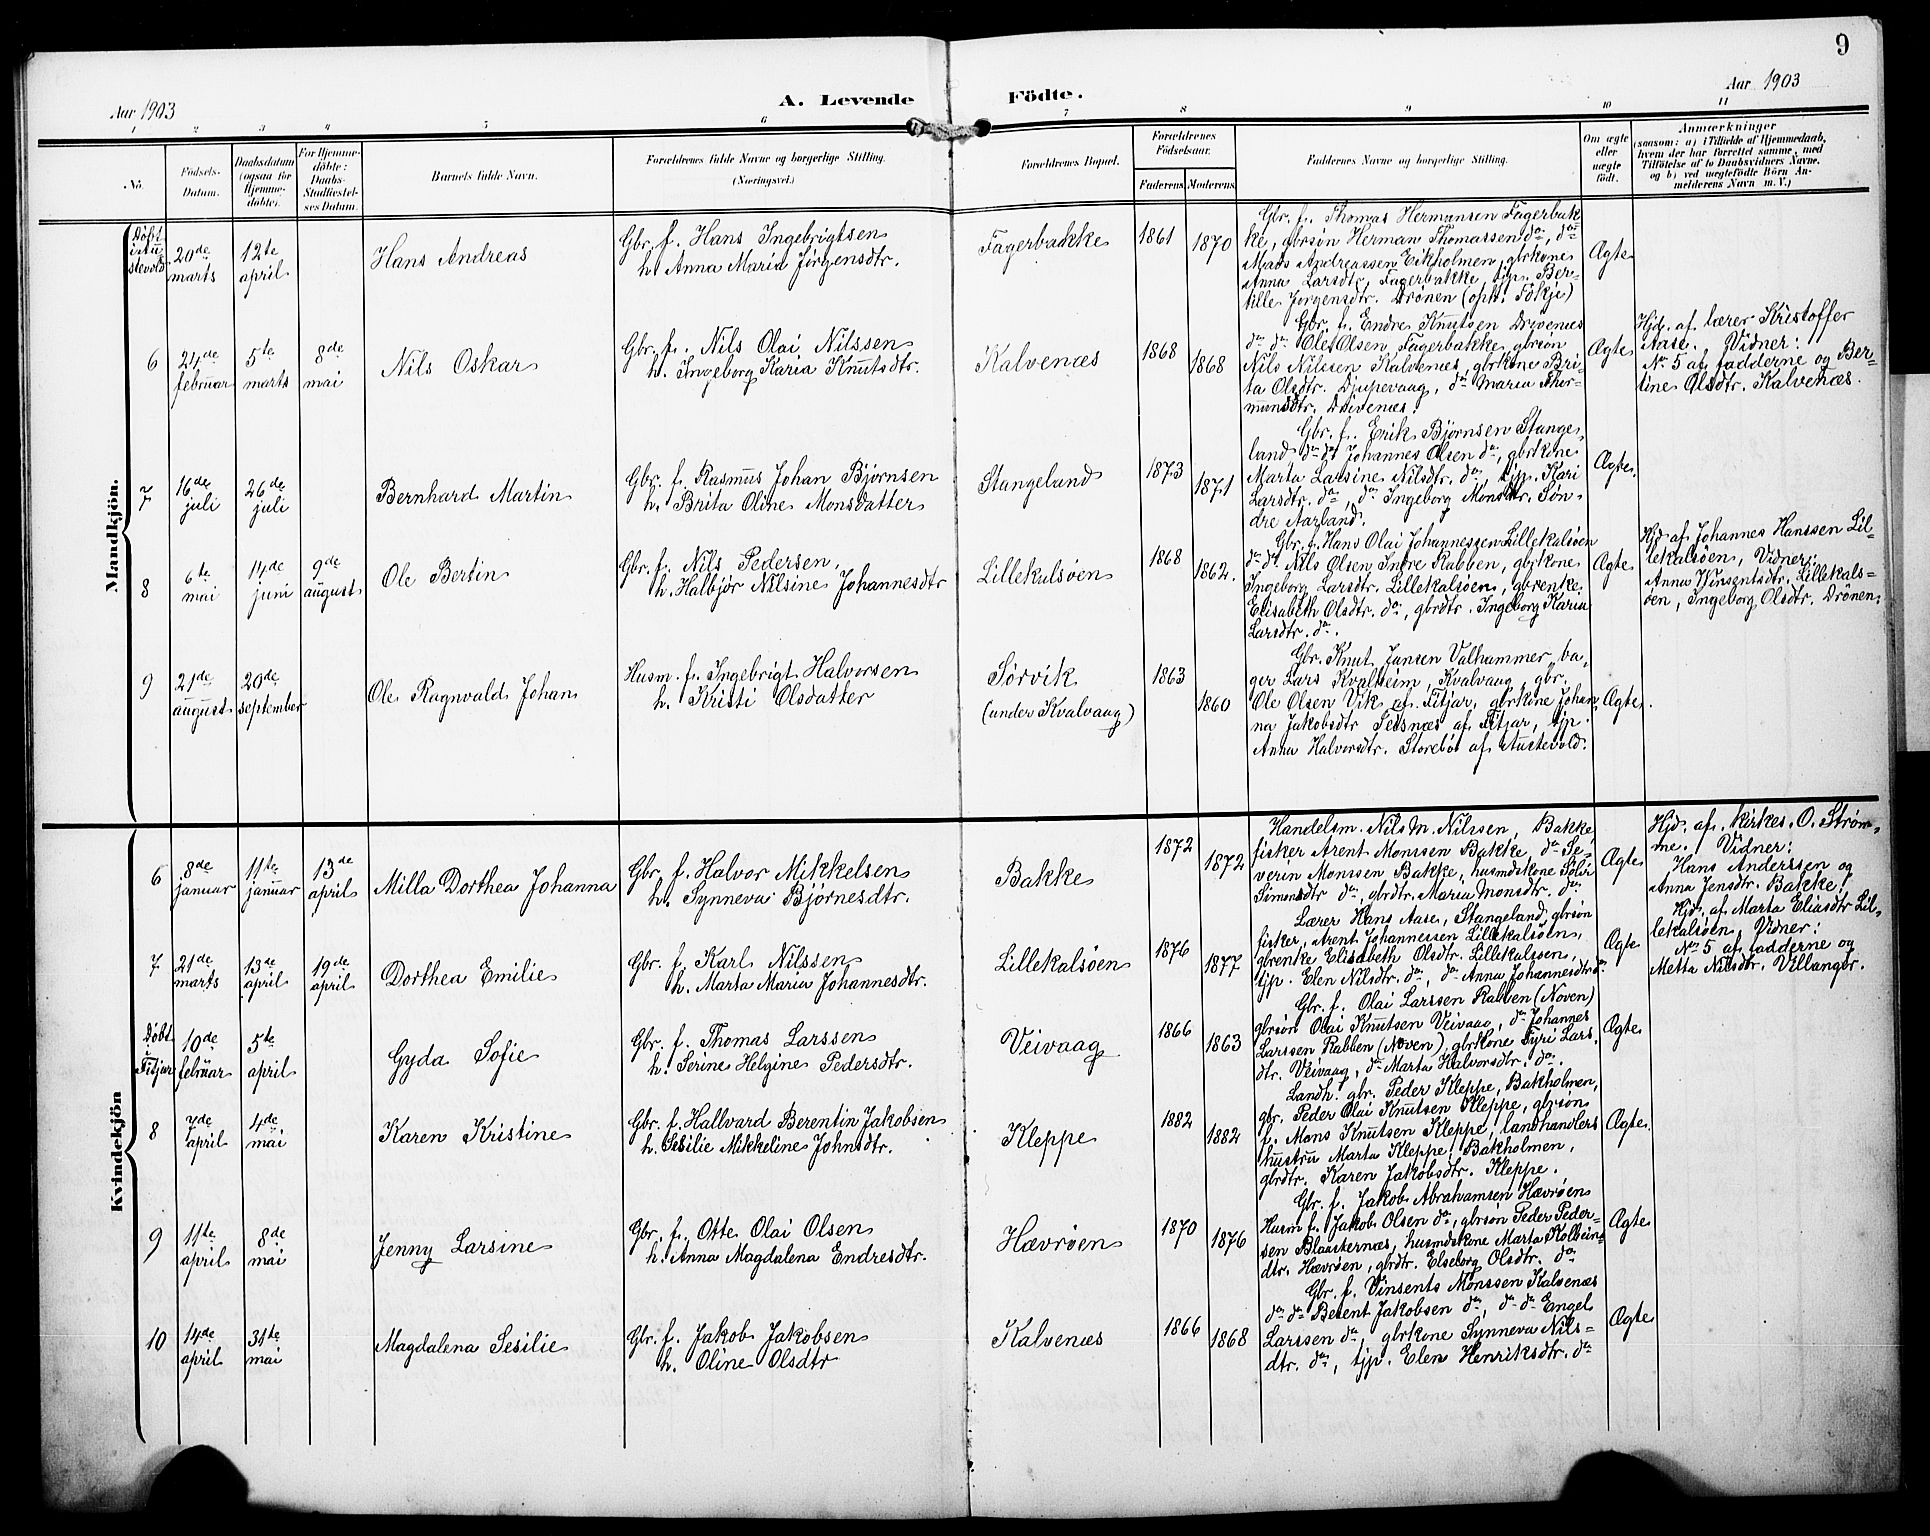 9
Aar 1903
A. Levende
Födte.
Aar 1903
1 2 3 4 5 6 7 8 9 10 11
No.
Födsels-
Datum.
Daabsdatum
(ogsaa for
Hjemme-
døbte).
For Hjemme-
døbte:
Daabs-
Stadfæstel-
ses Datum.
Barnets fulde Navn.
Forældrenes fulde Navne og borgerlige Stilling.
(Næringsvei.)
Forældrenes Bopæl.
Forældrenes
Födselsaar.
Faderens
Moderens
Faddernes Navne og borgerlige Stilling.
Om ægte
eller
uægte
født.
Anmærkninger
(saasom: a) i Tilfælde af Hjemmedaab,
hvem der har forrettet samme, med
Tilføielse af to Daabsvidners Navne.
og b) ved uægtefødte Börn An-
melderens Navn m. V.)
Mandkjön.
Døbt
i Au-
stevold
20de
marts
12te
april
Hans Andreas
Gbr. f. Hans Ingebrigtsen
h. Anna Maria Jørgensdtr.
Fagerbakke
1861
1870
Gbr. f. Thomas Hermansen Fagerbak
ke, gbrsøn Herman Thomassen do, do
Mads Andreassen Eikholmen, gbrkone
Anna Larsdtr. Fagerbakke, tjp. Ber-
tille Jørgensdtr. Drønen (oph. Fökje)
Ægte
6
24de
februar
5te
marts
8de
mai
Nils Oskar
Gbr. f. Nils Olai Nilssen
h. Ingeborg Karia Knutsdtr.
Kalvenæs
1868
1868
Gbr. f. Endre Knutsen Drivenæs
do do Ole Olsen Fagerbakke, gbrsøn
Nils Nilssen Kalvenes, gbrkone Bri-
ta Olsdtr. Djupevaag, do Maria Ther-
mundsdtr. Drivenæs.
Ægte
Hjd. af lærer Kristoffer
Aase. Vidner:
No 5 af fadderne og Ber-
tine Olsdtr. Kalvenæs.
7
16de
juli
26de
juli
Bernhard Martin
Gbr. f. Rasmus Johan Bjørnsen
h. Brita Oline Monsdatter
Stangeland
1873
1871
Gbr. f. Erik Bjørnsen Stange-
land do do Johannes Olsen do, gbrkone
Marta Larsine Nilsdtr. do, tjp. Kari
Larsdtr. do, do Ingeborg Monsdtr. Søn-
dre Aarland.
Ægte.
8
6te
mai
14de
juni
9de
august
Ole Bertin
Gbr. f. Nils Pedersen,
h. Halbjør Nilsine Johannesdtr
Lillekalsøen
1868
1862.
Gbr. f. Hans Olai Johannessen Lillekalsøen
do do Nils Olsen Indre Rabben, gbrkone
Ingeborg Larsdtr. Lillekalsøen, gbrenke
Elisabeth Olsdtr. do, gbrdtr. Ingeborg Karia
Larsdtr. do.
Ægte
Hjd af Johannes Hanssen Lil-
lekalsøen, Vidner:
Anna Vinsentsdtr. Lillekals-
øen, Ingeborg Olsdtr. Drønen.
9
21de
august
20de
september
Ole Ragnvald Johan
Husm. f. Ingebrigt Halvorsen
h. Kristi Olsdatter
Sørvik
(under Kvalvaag)
1863
1860
Gbr. Knut Jansen Valhammer, ba-
ger Lars Kvalheim, Kvalvaag, gbr.
Ole Olsen Vik af Fitjar, gbrkone Johan
na Jakobsdtr Teisnæs af Fitjar, tjp.
Anna Halvorsdtr. Storebø af Austevold.
Ægte.
Kvindekjön
6
8de
januar
11te
januar
13de
april
Milla Dorthea Johanna
Gbr. f. Halvor Mikkelsen
h. Synneva Bjørnesdtr.
Bakke
1872
1872
Handelsm. Nils M. Nilssen, Bakke,
fisker Arent Monssen Bakke, do Se-
verin Monssen Bakke, husmdskone Siliv
Simonsdtr do, gbrdtr. Maria Monsdtr. do
Ægte
Hjd. af kirkes. O. Strøm-
me. Vidner:
Hans Anderssen og
Anna Jensdtr. Bakke.
7
21de
marts
13de
april
19de
april
Dorthea Emilie
Gbr. f. Karl Nilssen
h. Marta Maria Johannesdtr.
Lillekalsøen
1876
1877
Lærer Hans Aase, Stangeland, gbrsøn
fisker, Arent Johannessen Lillekalsøen,
gbrenke Elisabeth Olsdtr. Lillekalsøen,
tjp. Elen Nilsdtr. do, do Anna Johannesdtr do.
Ægte
Hjd. af Marta Eliasdtr Lil-
lekalsøen, Vidner:
No 5 af fadderne og
Metta Nilsdtr. Villanger.
Døbt
i
Fitjar
10de
februar
5te
april
Gyda Sofie
Gbr. f. Thomas Larssen
h. Serine Helgine Pedersdtr.
Veivaag
1866
1863
Gbr. f. Olai Larssen Rabben (Noven)
gbrsøn Olai Knutsen Veivaag, do Johannes
Larssen Rabben (Noven), gbrkone Fyri Lars
dtr. Veivaag, do Marta Halvorsdtr. do.
Ægte
8
7de
april
4de
mai
Karen Kristine
Gbr. f. Hallvard Berentin Jakobsen
h. Sesilie Mikkeline Johnsdtr.
Kleppe
1882
1882
Landh. gbr. Peder Kleppe, Bakholmen,
gbr. Peder Olai Knutsen Kleppe, gbrsøn
f. Mons Knutsen Kleppe, landhandlers
hustru Marta Kleppe, Bakholmen,
gbrdtr. Karen Jakobsdtr. Kleppe.
Ægte.
9
11te
april
8de
mai
Jenny Larsine
Gbr. f. Otte Olai Olsen
h. Anna Magdalena Endresdtr.
Hævrøen
1870
1876
Gbr. f. Jakob Abrahamsen Hævrøen
Husm f. Jakob Olsen do, gbrsøn Peder Peder-
sen Blaasternæs, husmdskone Marta Kolbeins
dtr. Hævrøen, gbrdtr. Elseborg Olsdtr. do
Ægte
10
14de
april
31te
mai
Magdalena Sesilie
Gbr. f. Jakob Jakobsen
h. Oline Olsdtr
Kalvenæs
1866
1868
Gbr. f. Vinsents Monssen Kalvenæs
do do Berent Jakobsen do, do do Engel
Larssen do, gbrkone Synneva Nils-
dtr. do, tjp. Elen Henriksdtr. do
Ægte